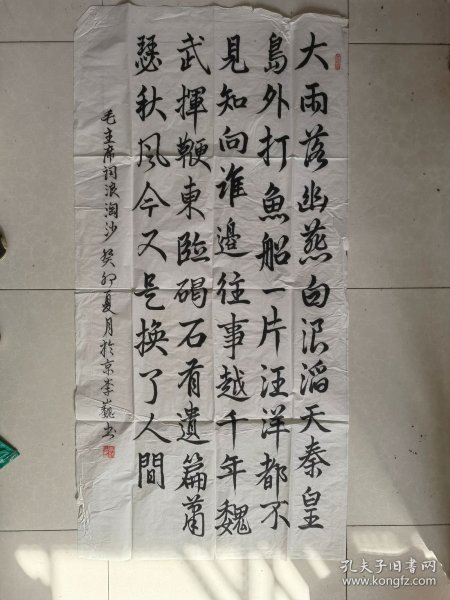 大雨落幽燕白浪滔天秦皇
島外打魚船一片汪洋都不
見知向誰邊往事越千年魏
武揮鞭東臨碣石有遺篇蕭
瑟秋风今又是换了人間
毛主席词浪淘沙癸卯夏月於京李巍书
孔夫子旧书网
www.kongfz.com